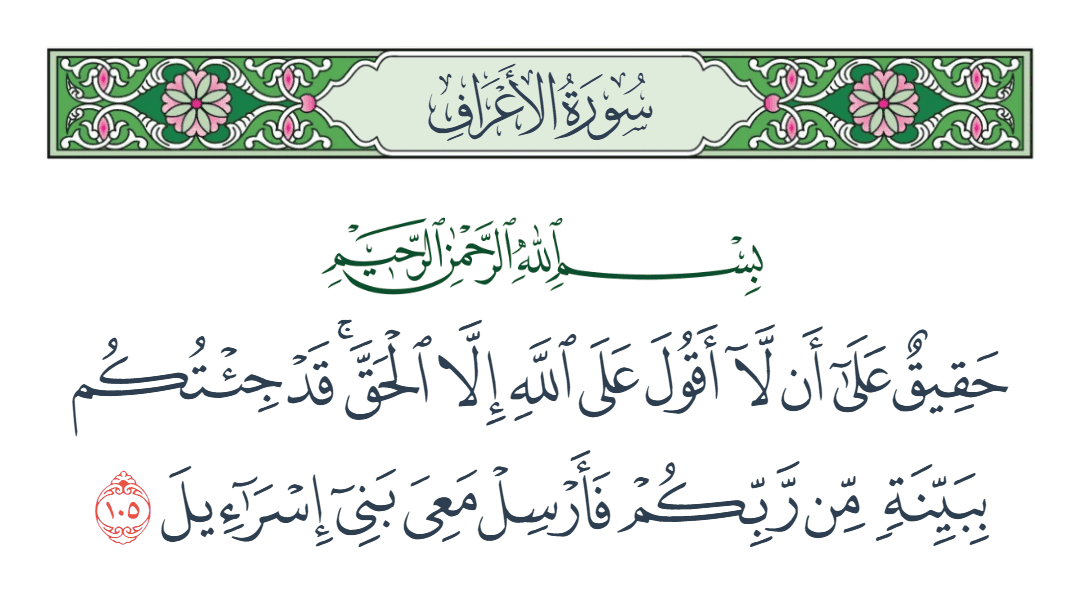 سُورَةُ الأَعۡرَافِ
بِسۡمِ ٱللَّهِ ٱلرَّحۡمَٰنِ ٱلرَّحِيمِ
حَقِيقٌ عَلَىٰٓ أَن لَّآ أَقُولَ عَلَى ٱللَّهِ إِلَّا ٱلۡحَقَّۚ قَدۡ جِئۡتُكُم
بِبَيِّنَةٖ مِّن رَّبِّكُمۡ فَأَرۡسِلۡ مَعِيَ بَنِيٓ إِسۡرَٰٓءِيلَ ١٠٥